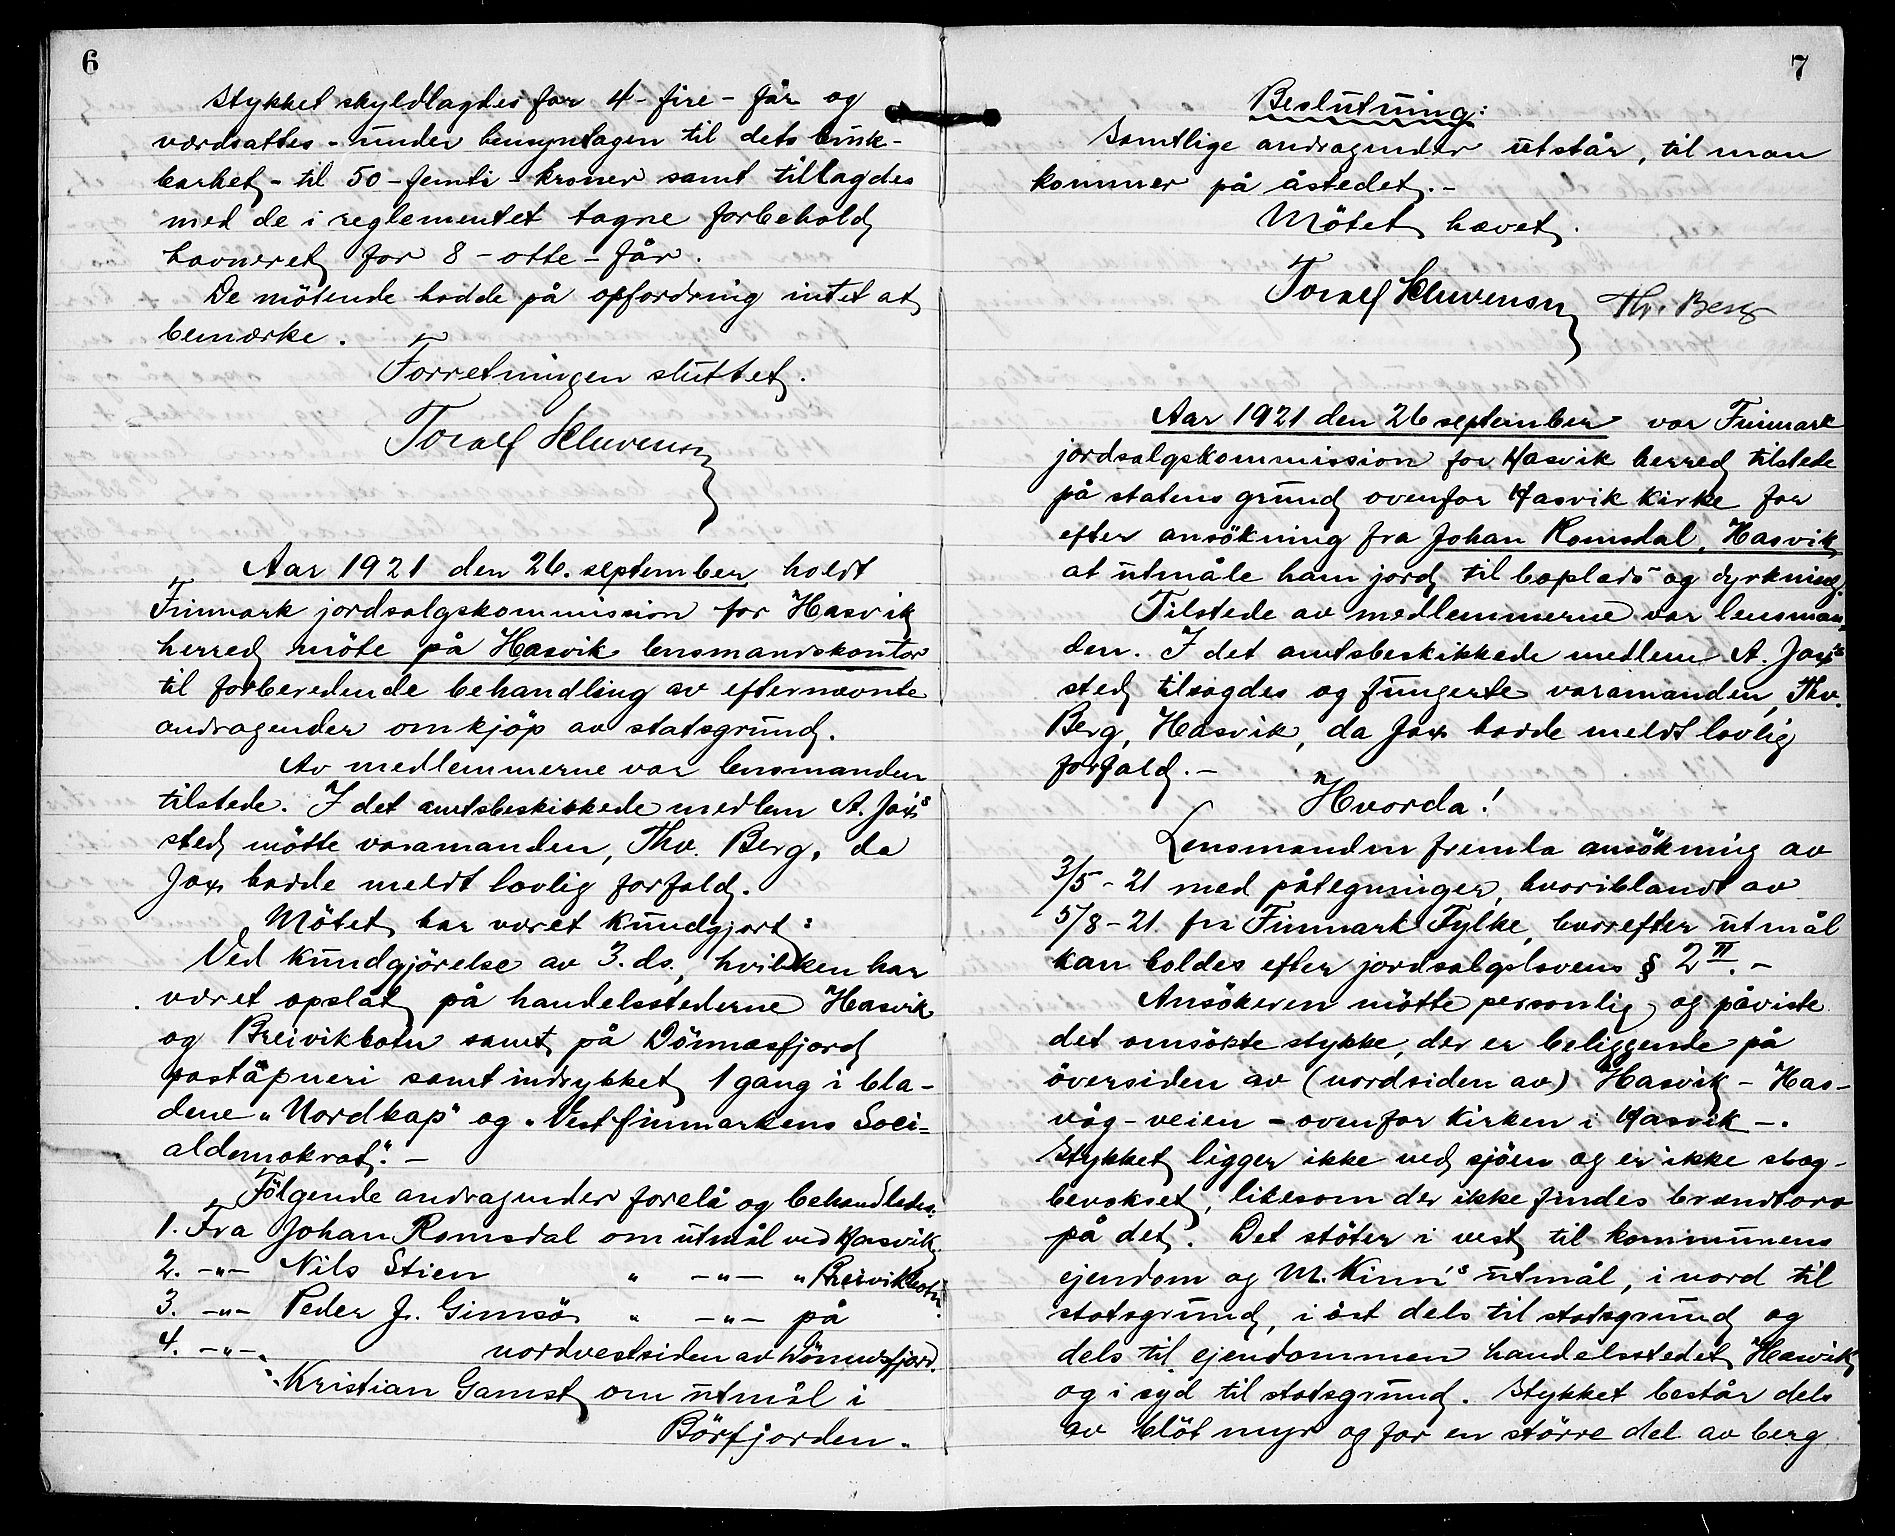 6
Stykket skyldlagdes for 4 - fire - får og
værdsattes - under hensyntagen til dets bruk-
barhet - til 50 - femti - kroner samt tillagdes
med de i reglementet tagne forbehold
havneret for 8 - otte - får.
De mötende hadde på opfordring intet at
bemærke.
Forretningen sluttet.
Aar 1921 den 26. september holdt
Finmark jordsalgskommission for Hasvik
herred möte på Hasvik lensmandskontor
til forberedende behandling av efternævnte
andragender om kjöp av statsgrund.
Av medlemmerne var lensmanden
tilstede. I det amtsbeskikkede medlem A. Jax's
sted mötte varamanden, Thv. Berg, da
Jax hadde meldt lovlig forfald.
Mötet har været kundgjort:
Ved kundgjörelse av 3. ds., hvilken har
været opslåt på handelsstederne Hasvik
og Breivikbotn samt på Dönnesfjord
poståpneri samt indrykket 1 gang i bla-
dene „Nordkap" og „Vestfinmarkens Soci=
aldemokrat". -
Fölgende andragender forelå og behandledes:
1. Fra Johan Romsdal om utmål ved Hasvik.
2. -"- Nils Stien " -"- " Breivikbotn.
3. -"- Peder J. Gimsö " -"- på
nordvestsiden av Dönnesfjord.
4. -"- Kristian Gamst om utmål i
Börfjorden.
7
Beslutning:
Samtlige andragender utstår, til man
kommer på åstedet. -
Mötet hævet.
Thv. Berg
Aar 1921 den 26 september var Finmark
jordsalgskommission for Hasvik herred tilstede
på statens grund ovenfor Hasvik kirke for
efter ansökning fra Johan Romsdal, Hasvik
at utmåle ham jord til boplads og dyrkning.
Tilstede av medlemmerne var lensman=
den. I det amtsbeskikkede medlem A. Jax's
sted tilsagdes og fungerte varamanden, Thv.
Berg, Hasvik, da Jax hadde meldt lovlig
forfald. -
Hvorda!
Lensmanden fremla ansökning av
3/5 - 21 med påtegninger, hvoriblandt av
5/8 - 21 fra Finmark Fylke, hvorefter utmål
kan holdes efter jordsalgslovens § 2 II. -
Ansökeren mötte personlig og påviste
det ansökte stykke, der er beliggende på
översiden av (nordsiden av) Hasvik - Has-
våg - veien - ovenfor kirken i Hasvik -.
Stykket ligger ikke ved sjöen og er ikke skog-
bevokset, likesom der ikke findes brændtorv
på det. Det stöter i vest til kommunens
ejendom og M. Kinn's utmål, i nord til
statsgrund, i öst dels til statsgrund og
dels til ejendommen handelsstedet Hasvik
og i syd til statsgrund. Stykket består dels
av blöt myr og for en större del av berg